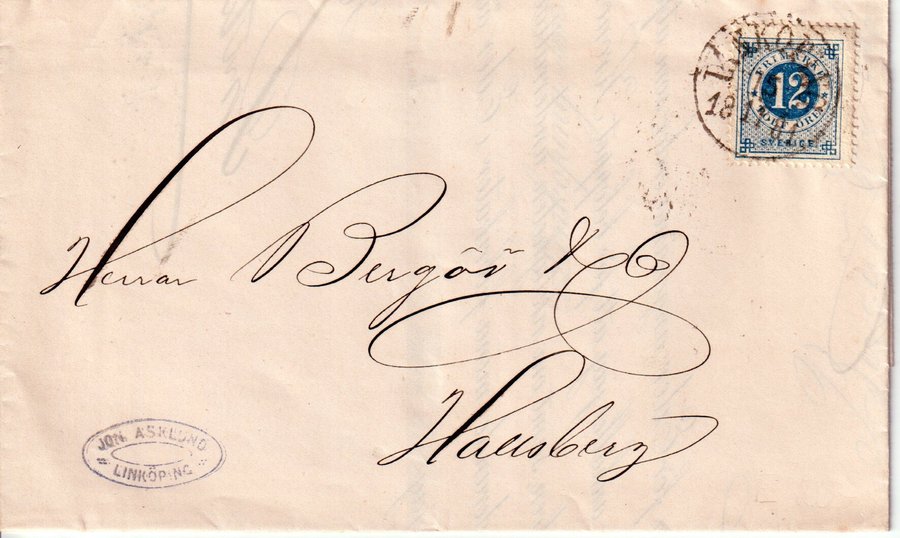 LINKÖPING
18 11
FRIMÄRKE
12
TOLF ÖRE
SVERIGE
Herrar Bergöö & Co
Hallsberg
JON. ASKLUND
LINKÖPING